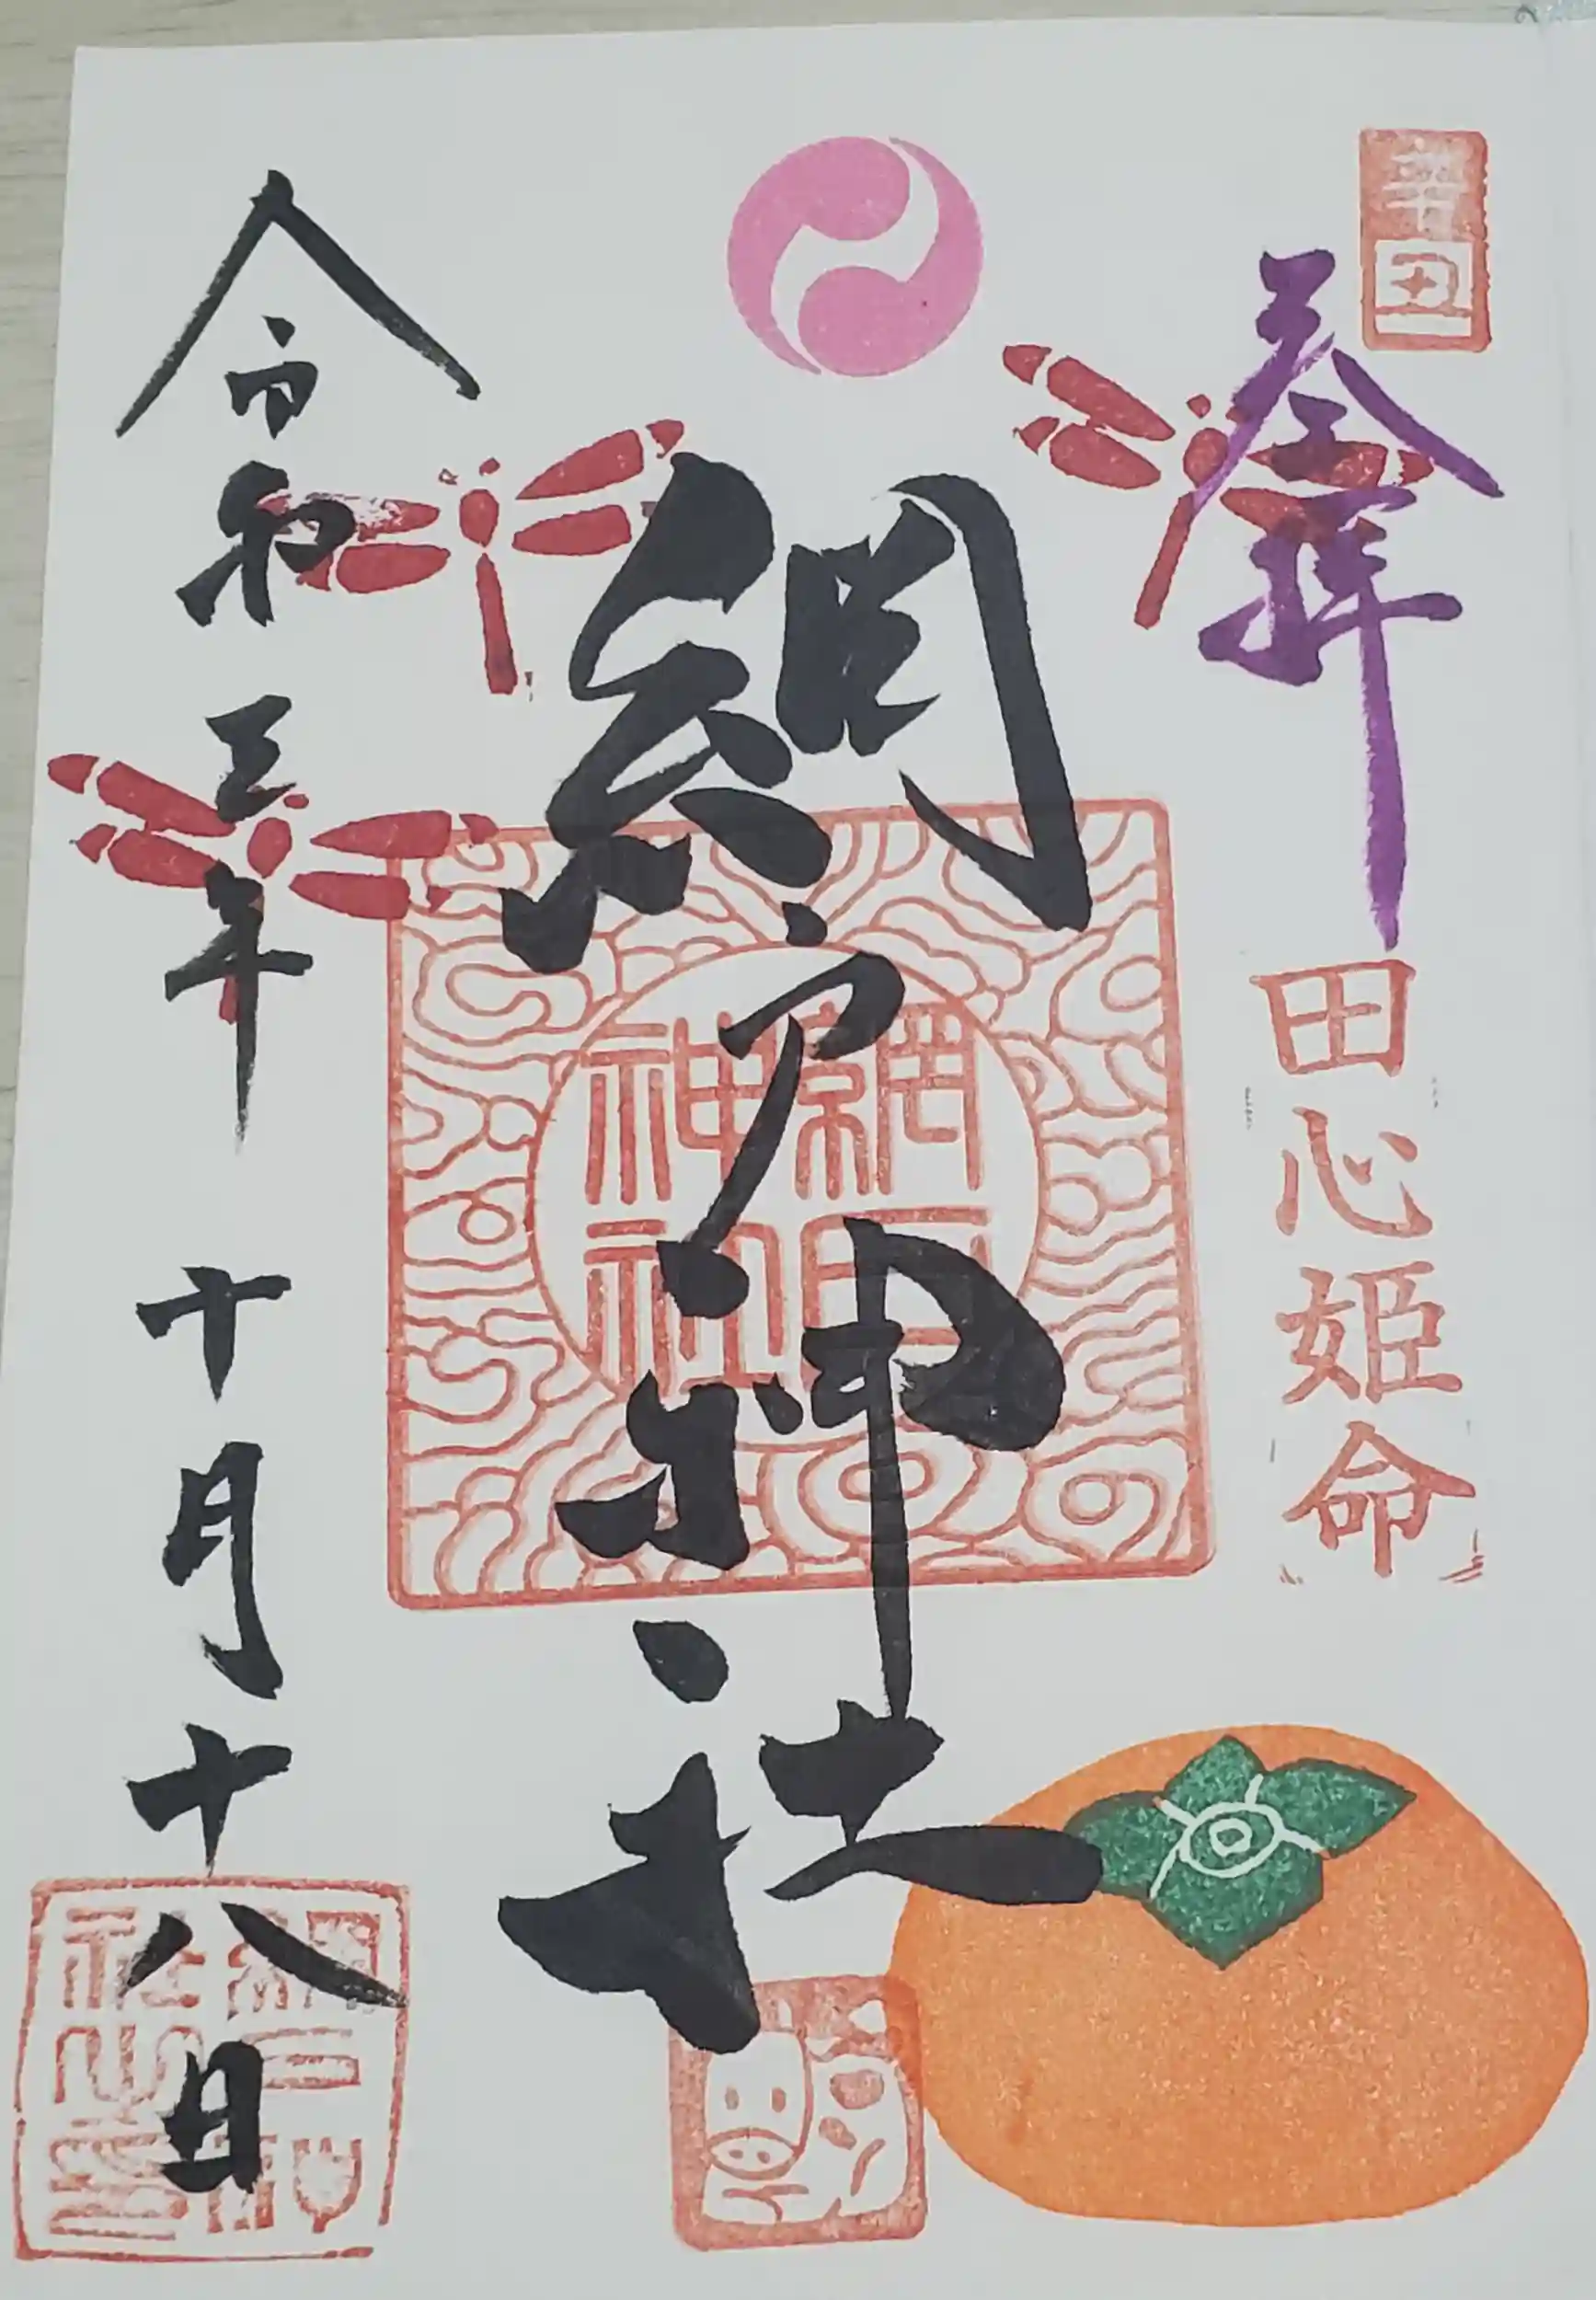 辛丑
奉拝
田心姫命
網戸神社
網戸神社
令和三年 十月十八日